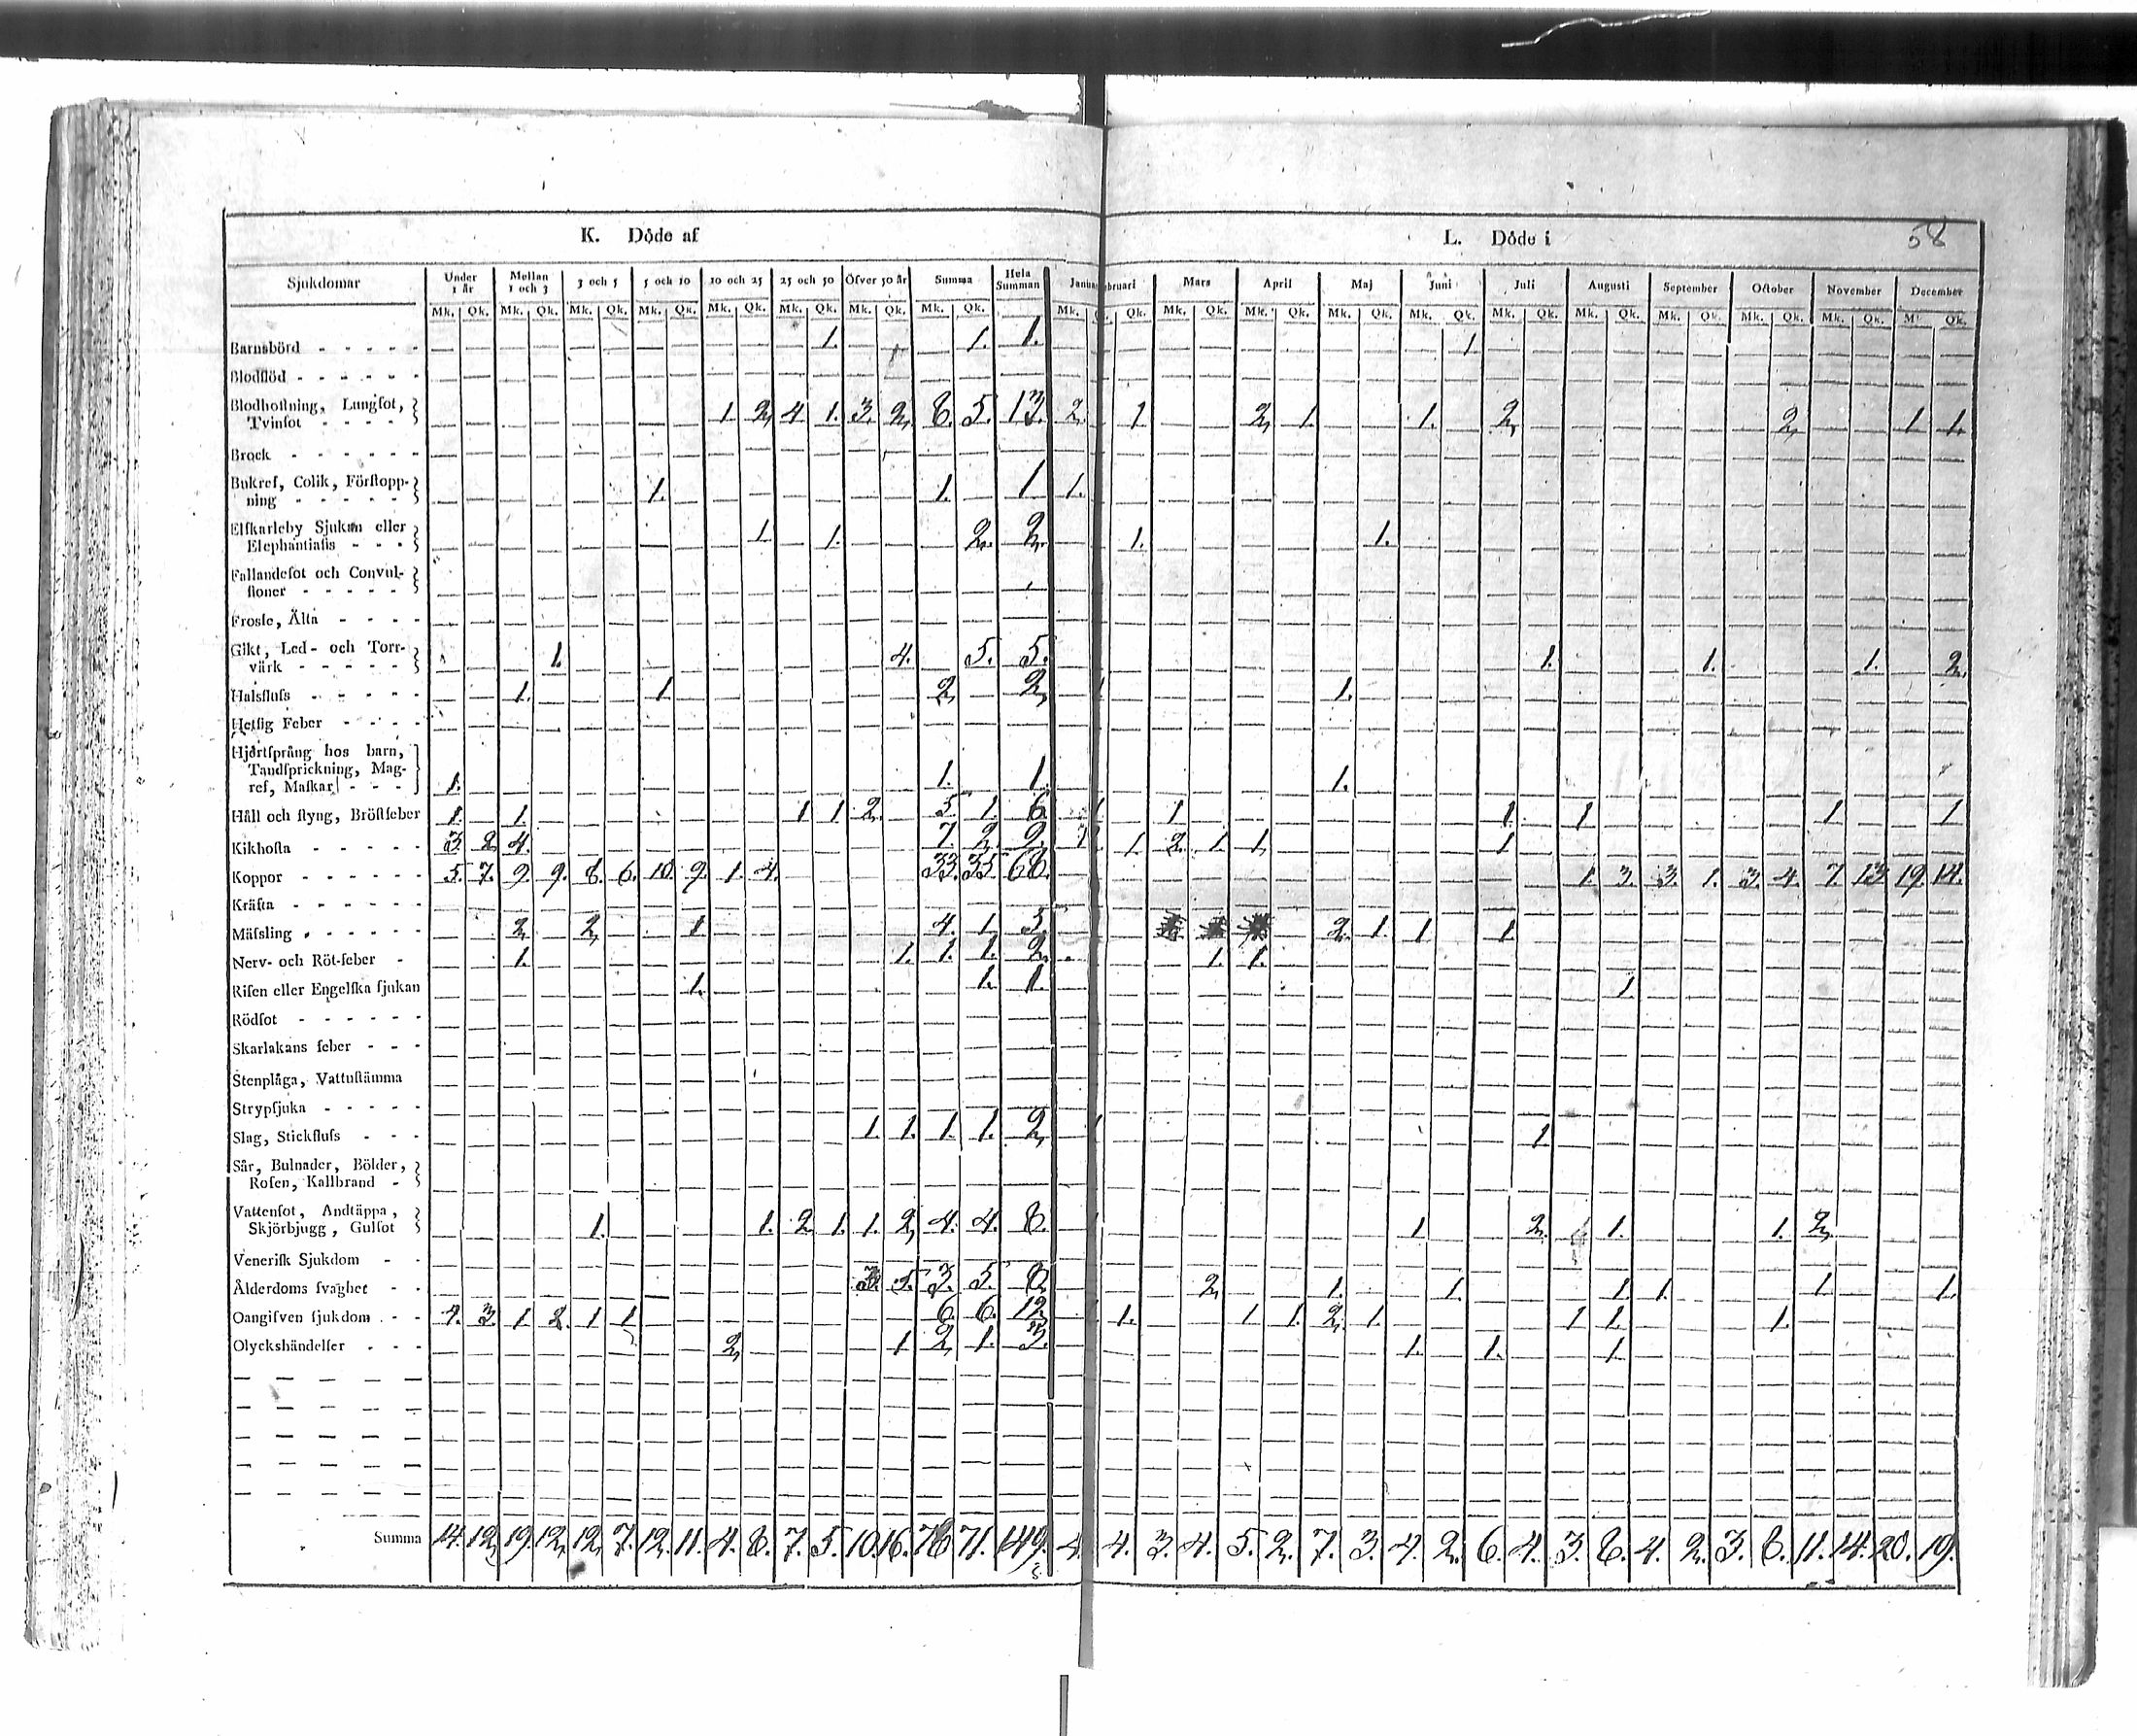 K. Döde af L. Döde i 58
Sjukdomar Under 1 år Mellan 1 och 3 3 och 5 5 och 10 10 och 25 25 och 50 Öfver 50 år Summa Hela Summan Mars April Maj Juni Juli Augusti September October November December
Mk. Qk. Mk. Qk. Mk. Qk. Mk. Qk. Mk. Qk. Mk. Qk. Mk. Qk. Mk. Qk. Mk. Qk. Mk. Qk. Mk. Qk. Mk. Qk. Mk. Qk. Mk. Qk. Mk. Qk. Mk. Qk. Mk. Qk. Mk. Qk. Qk.
Barnsbörd - - - - - 1. 1. 1. 1
Blodflöd - - - - - -
Blodhoſtning, Lungſot,
Tvinſot - - - - 1. 2, 4. 1. 3. 2, 8. 5. 13. 2. 1 2, 1. 1. 2, 2, 1 1.
Brock - - - - - -
Bukref, Colik, Förſtopp-
ning - - - - - 1. 1. 1 1.
Elſkarleby Sjukan eller
Elephantiaſis - - - 1. 1. 2. 2. 1. 1.
Fallandeſot och Convul-
ſioner - - - - -
Frosſe, Älta - - - -
Gikt, Led- och Torr-
värk - - - - - 1. 4. 5. 5. 1. 1. 1. 2.
Halsfluſs - - - - - 1. 1 2, 2, 1.
Hetſig Feber - - - -
Hjertſprång hos barn,
Tandſprickning, Mag-
ref, Maſkar - - - 1. 1. 1. 1.
Håll och ſtyng, Bröſtfeber 1. 1. 1 1 2. 5. 1. 6. 1 1 1 1 1 1
Kikhoſta - - - - - 3. 2. 4. 7. 2. 9. 1. 2. 1 1. 1
Koppor - - - - - - 5. 7. 9. 9. 8. 6. 10. 9. 1. 4. 33. 35. 68. 1. 3. 3. 1. 3. 4. 7. 13. 19. 14.
Kräfta - - - - - -
Mäſsling - - - - - - 2, 2, 1 4. 1. 5. 2. 1. 1 1.
Nerv- och Röt-feber - 1. 1. 1. 1. 2. 1. 1.
Riſen eller Engelſka ſjukan 1. 1. 1. 1.
Rödſot - - - - - -
Skarlakans feber - - -
Stenplåga, Vattuſtämma
Strypſjuka - - - - -
Slag, Stickfluſs - - - 1. 1. 1. 1. 2, 1
Sår, Bulnader, Bölder,
Roſen, Kallbrand -
Vattenſot, Andtäppa,
Skjörbjugg, Gulſot 1. 1. 2. 1. 1. 2, 4. 4. 8. 1 2. 1. 1. 2,
Veneriſk Sjukdom - -
Ålderdoms ſvaghet - - 3. 5. 3. 5. 8. 2, 1. 1. 1. 1. 1. 1.
Oangifven ſjukdom - - 4. 3. 1. 2. 1 1 6. 6. 12. 1. 1 1. 2. 1. 1 1. 1.
Olyckshändelſer - - - 2, 1 2, 1. 3. 1. 1. 1
Summa 14. 12, 19. 12, 12, 7. 12. 11. 4. 8. 7. 5. 10. 16. 78. 71. 149. 4. 4. 3. 4. 5. 2. 7. 3. 4. 2. 6. 4. 3. 8. 4. 2. 3. 8. 11. 14. 20. 19.